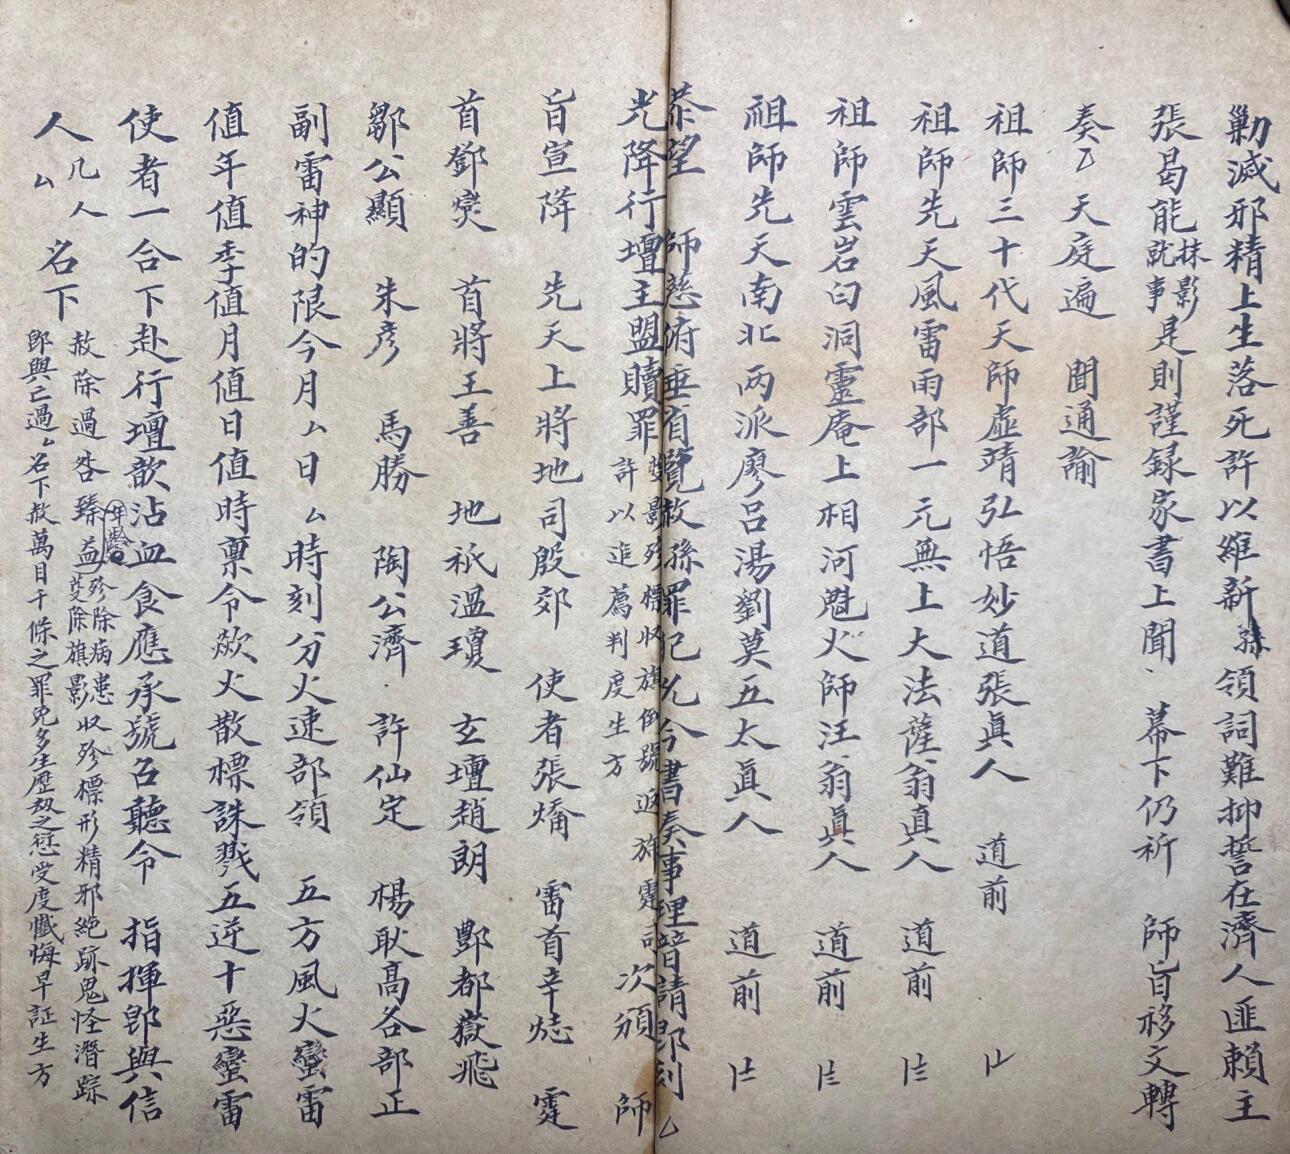 勦滅邪精上生落死許以維新孫領詞難抑誓在濟人匪賴主
張曷能抹影就事是則謹録家書上聞、幕下仍祈　師旨移文轉
奏乙天庭遍　聞通諭
祖師三十代天師虛靖弘悟妙道張眞人　道前
祖師先天風雷雨部一元無上大法薩翁眞人　道前
祖師雲岩白洞靈庵上相河魁火師汪翁眞人　道前
祖師先天南北两派廖呂湯劉莫五太眞人　道前
恭望　師慈俯垂省覽赦孫罪犯允今書奏事理普請即刻
光降行壇主盟贖罪許以進薦判度生方　次頒　師
旨宣降　先天上將地司殷郊　使者張燏　雷首辛　霆
首鄧燮　首將王善　地祇溫瓊　玄壇趙朗　酆都嶽飛
鄒公顯　朱彥　馬勝　陶公濟　許仙定　楊耿高各部正
副雷神的限今月ㄙ日ㄙ時刻分火速部領　五方風火蠻雷
值年值季值月值日值時禀令歘火散標誅戮五逆十惡蠻雷
使者一合下赴行壇歆沾血食應承號召聽令　指揮即與信
人几人ㄙ名下赦除過咎臻益年齡殄除病患芟除旗影収殄標形精邪絕跡鬼怪潛踪
即與亡過ㄙ名下赦萬目千條之罪免多生歷刼之愆受度懺悔早証生方